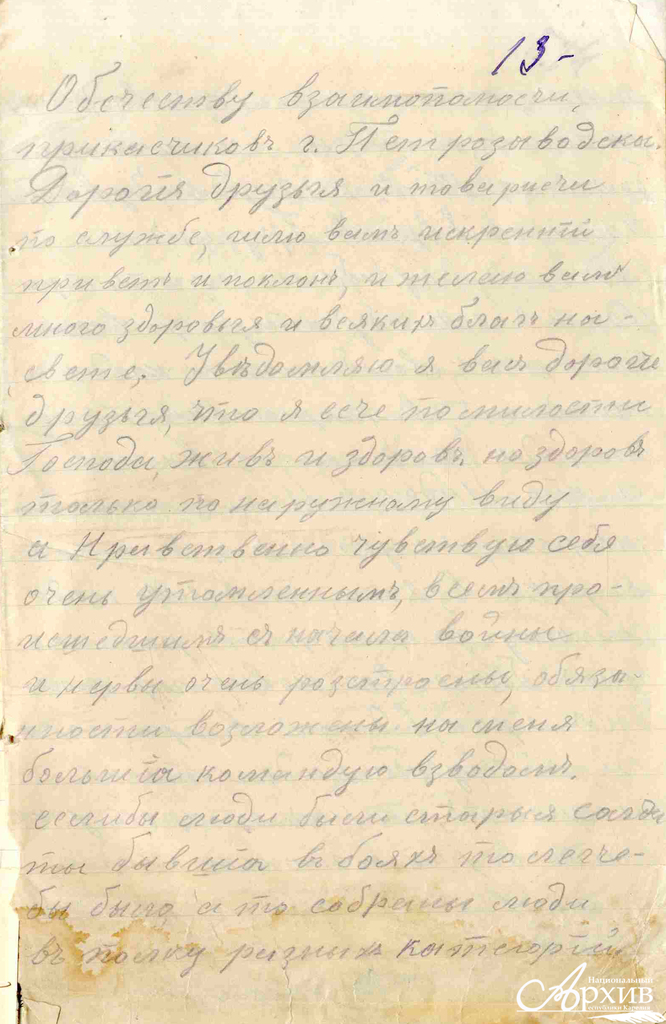 13-
Обчеству взаимопомочи,
прикасчиковъ г. Петрозаводска.
Дорогія друзья и товарисчи
по службе, шлю вамъ искренній
приветъ и поклонъ, и желаю вамъ
много здоровья и всякихъ благъ на-
свете. Увѣдомляю я васъ дорогіе
друзья, что я есче по милости
Господа, живъ и здоровъ, но здоровъ
только по наружному виду
а Нравственно чувствую себя
очень утомленнымъ, всемъ про-
исшедшимъ съ начала войны
и нервы очень розстроены, обяза-
нности возложены на меня
большія командую взводомъ.
еслибы люди были старыя солда
ты бывшіа въ бояхъ то легче-
бы было а то собраны люди
въ полку разныхъ категорій
Национальный
Архив
Республики Карелия